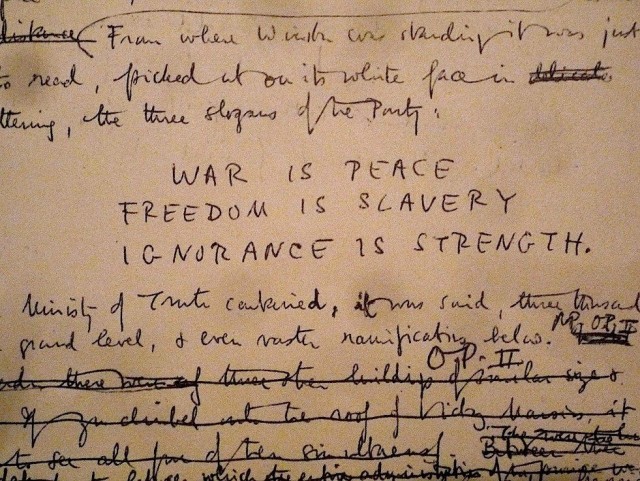 distance From where Winston was standing it was just
to read, picked out on its white face in delicate
ttering, the three slogans of the Party:
WAR IS PEACE
FREEDOM IS SLAVERY
IGNORANCE IS STRENGTH.
Ministry of Truth contained, it was said, three thousand
ground level, & even vaster ramifications below.
OP. II
there were three other buildings of similar size &
If you climbed onto the roof of Victory Mansions, it
to see all four of them simultaneously. Between
which the entire administrative